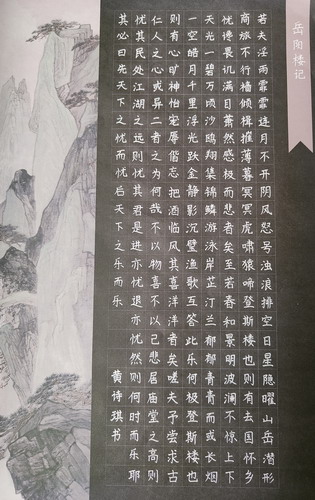 岳阳楼记
若夫淫雨霏霏连月不开阴风怒号浊浪排空日星隐曜山岳潜形
商旅不行樯倾楫摧薄暮冥冥虎啸猿啼登斯楼也则有去国怀乡
忧谗畏讥满目萧然感极而悲者矣至若春和景明波澜不惊上下
天光一碧万顷沙鸥翔集锦鳞游泳岸芷汀兰郁郁青青而或长烟
一空皓月千里浮光跃金静影沉璧渔歌互答此乐何极登斯楼也
则有心旷神怡宠辱偕忘把酒临风其喜洋洋者矣嗟夫予尝求古
仁人之心或异二者之为何哉不以物喜不以己悲居庙堂之高则
忧其民处江湖之远则忧其君是进亦忧退亦忧然则何时而乐耶
其必曰先天下之忧而忧后天下之乐而乐
黄诗琪书